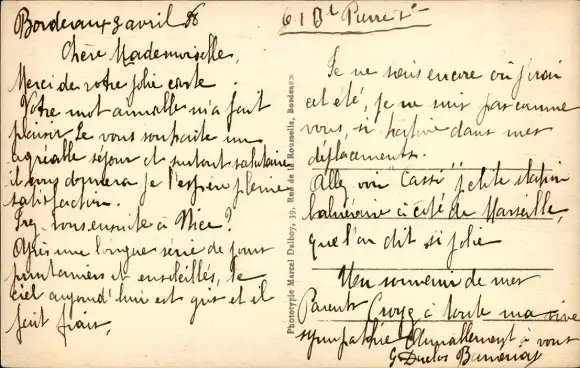 Bordeaux 3 avril
61 Bd Pierre 1er
Chère Mademoiselle,
Merci de votre jolie carte.
Votre mot aimable m'a fait
plaisir. Je vous souhaite un
agréable séjour et surtout salutaire
il vous donnera je l'espère pleine
satisfaction.
Irez vous ensuite à Nice?
Après une longue série de jours
printaniers et ensoleillés, le
ciel aujourd'hui est gris et il
fait frais.
Phototypie Marcel Delboy, 39, Rue de la Rousselle, Bordeaux
Je ne sais encore où j'irai
cet été, je ne suis pas comme
vous, si hative dans mes
déplacements.
Allez voir Cassi petite station
balnéaire à côté de Marseille,
que l'on dit si jolie
Un souvenir de mes
Parents Croyez à toute ma vive
sympathie Aimablement à vous
G Duclos